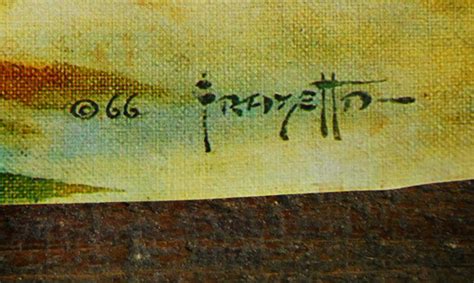 © 66 FRAZETTA